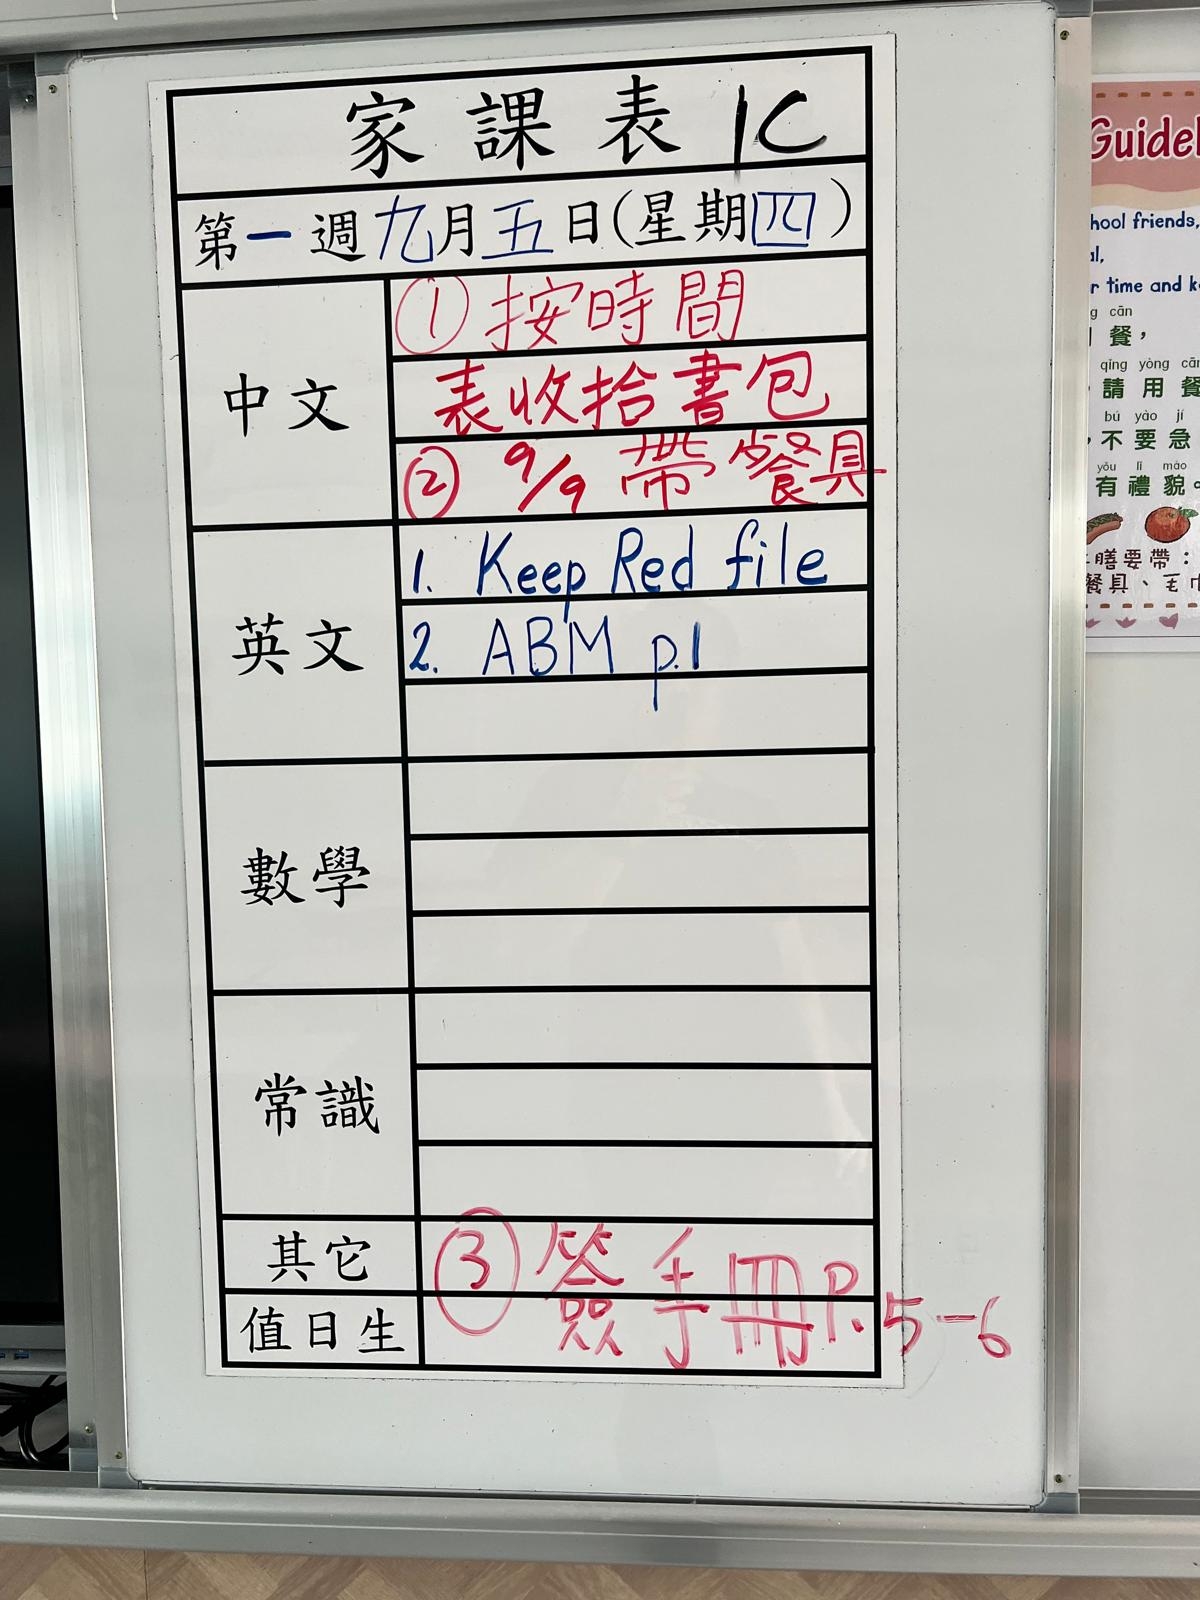 家課表 1C
第一週九月五日(星期四)
中文
① 按時間
表收拾書包
② 9/9 帶餐具
英文
1. Keep Red file
2. ABM p.1
數學
常識
其它
③ 簽手冊P.5-6
值日生
Guidel
hool friends,
al,
r time and k
g cān
餐，
qǐng yòng cān
請用餐
bú yào jí
不要急
yǒu lǐ mào
有禮貌。
膳要帶：
餐具、毛巾